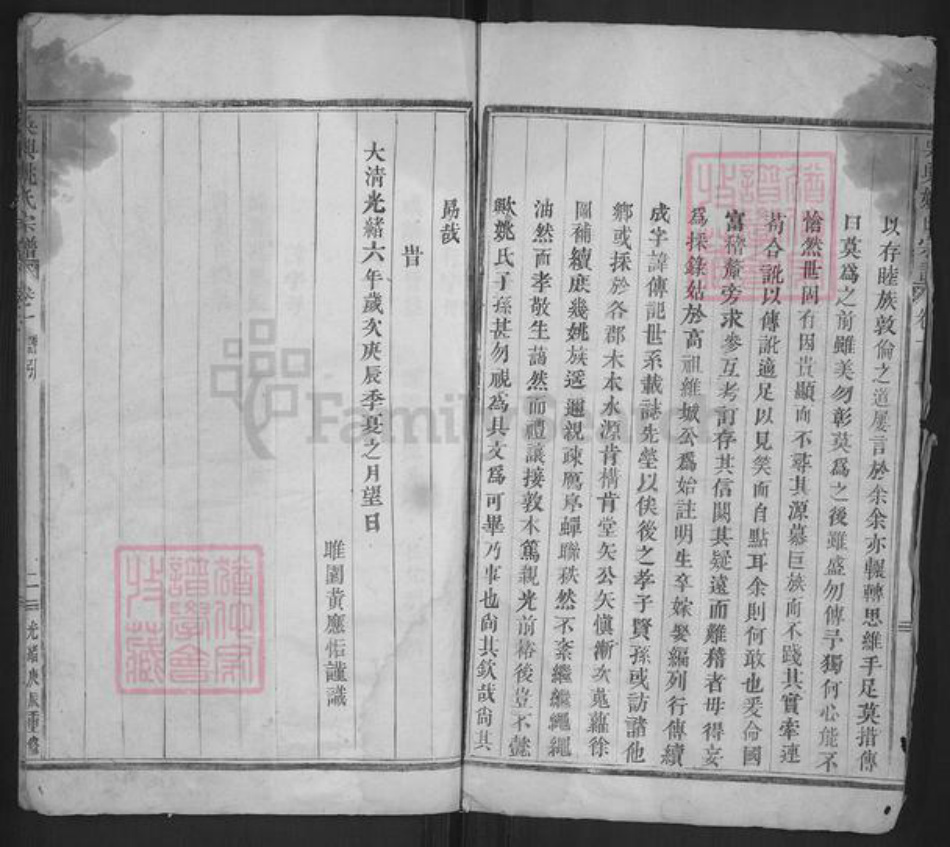 以存睦族敦倫之道屢言於余余亦輾轉思維手足莫措傳
曰莫爲之前雖美勿彰莫爲之後雖盛勿傳予獨何心能不
恰然世固有因貴顯而不尋其源慕巨族而不踐其實牽連
苟合訛以傳訛適足以見笑而自點耳余則何敢也爰命國
富 旁求參互考訂存其信闕其疑遠而難稽者毋得妄
爲採錄姑於高祖維城公爲始註明生卒嫁娶編列行傳續
成字諱傳記世系載誌先塋以俟後之孝子賢孫或訪諸他
鄉或採於各郡木本水源肯構肯堂矢公矢愼漸次蒐羅徐
圖補續庶幾姚族遠邇親疎鴈序蟬聯秩然不紊繼繼繩繩
油然而孝敬生藹然而禮讓接敦本篤親光前裕後豈不懿
歟姚氏子孫甚勿視爲具文爲可畢乃事也尚其欽哉尚其
勗哉
旹
大清光緒六年歲次庚辰季夏之月望日
睢園黃應 謹識
吳興姚氏宗譜
卷一 譜引
二
光緒庚辰重修
FamilySearch